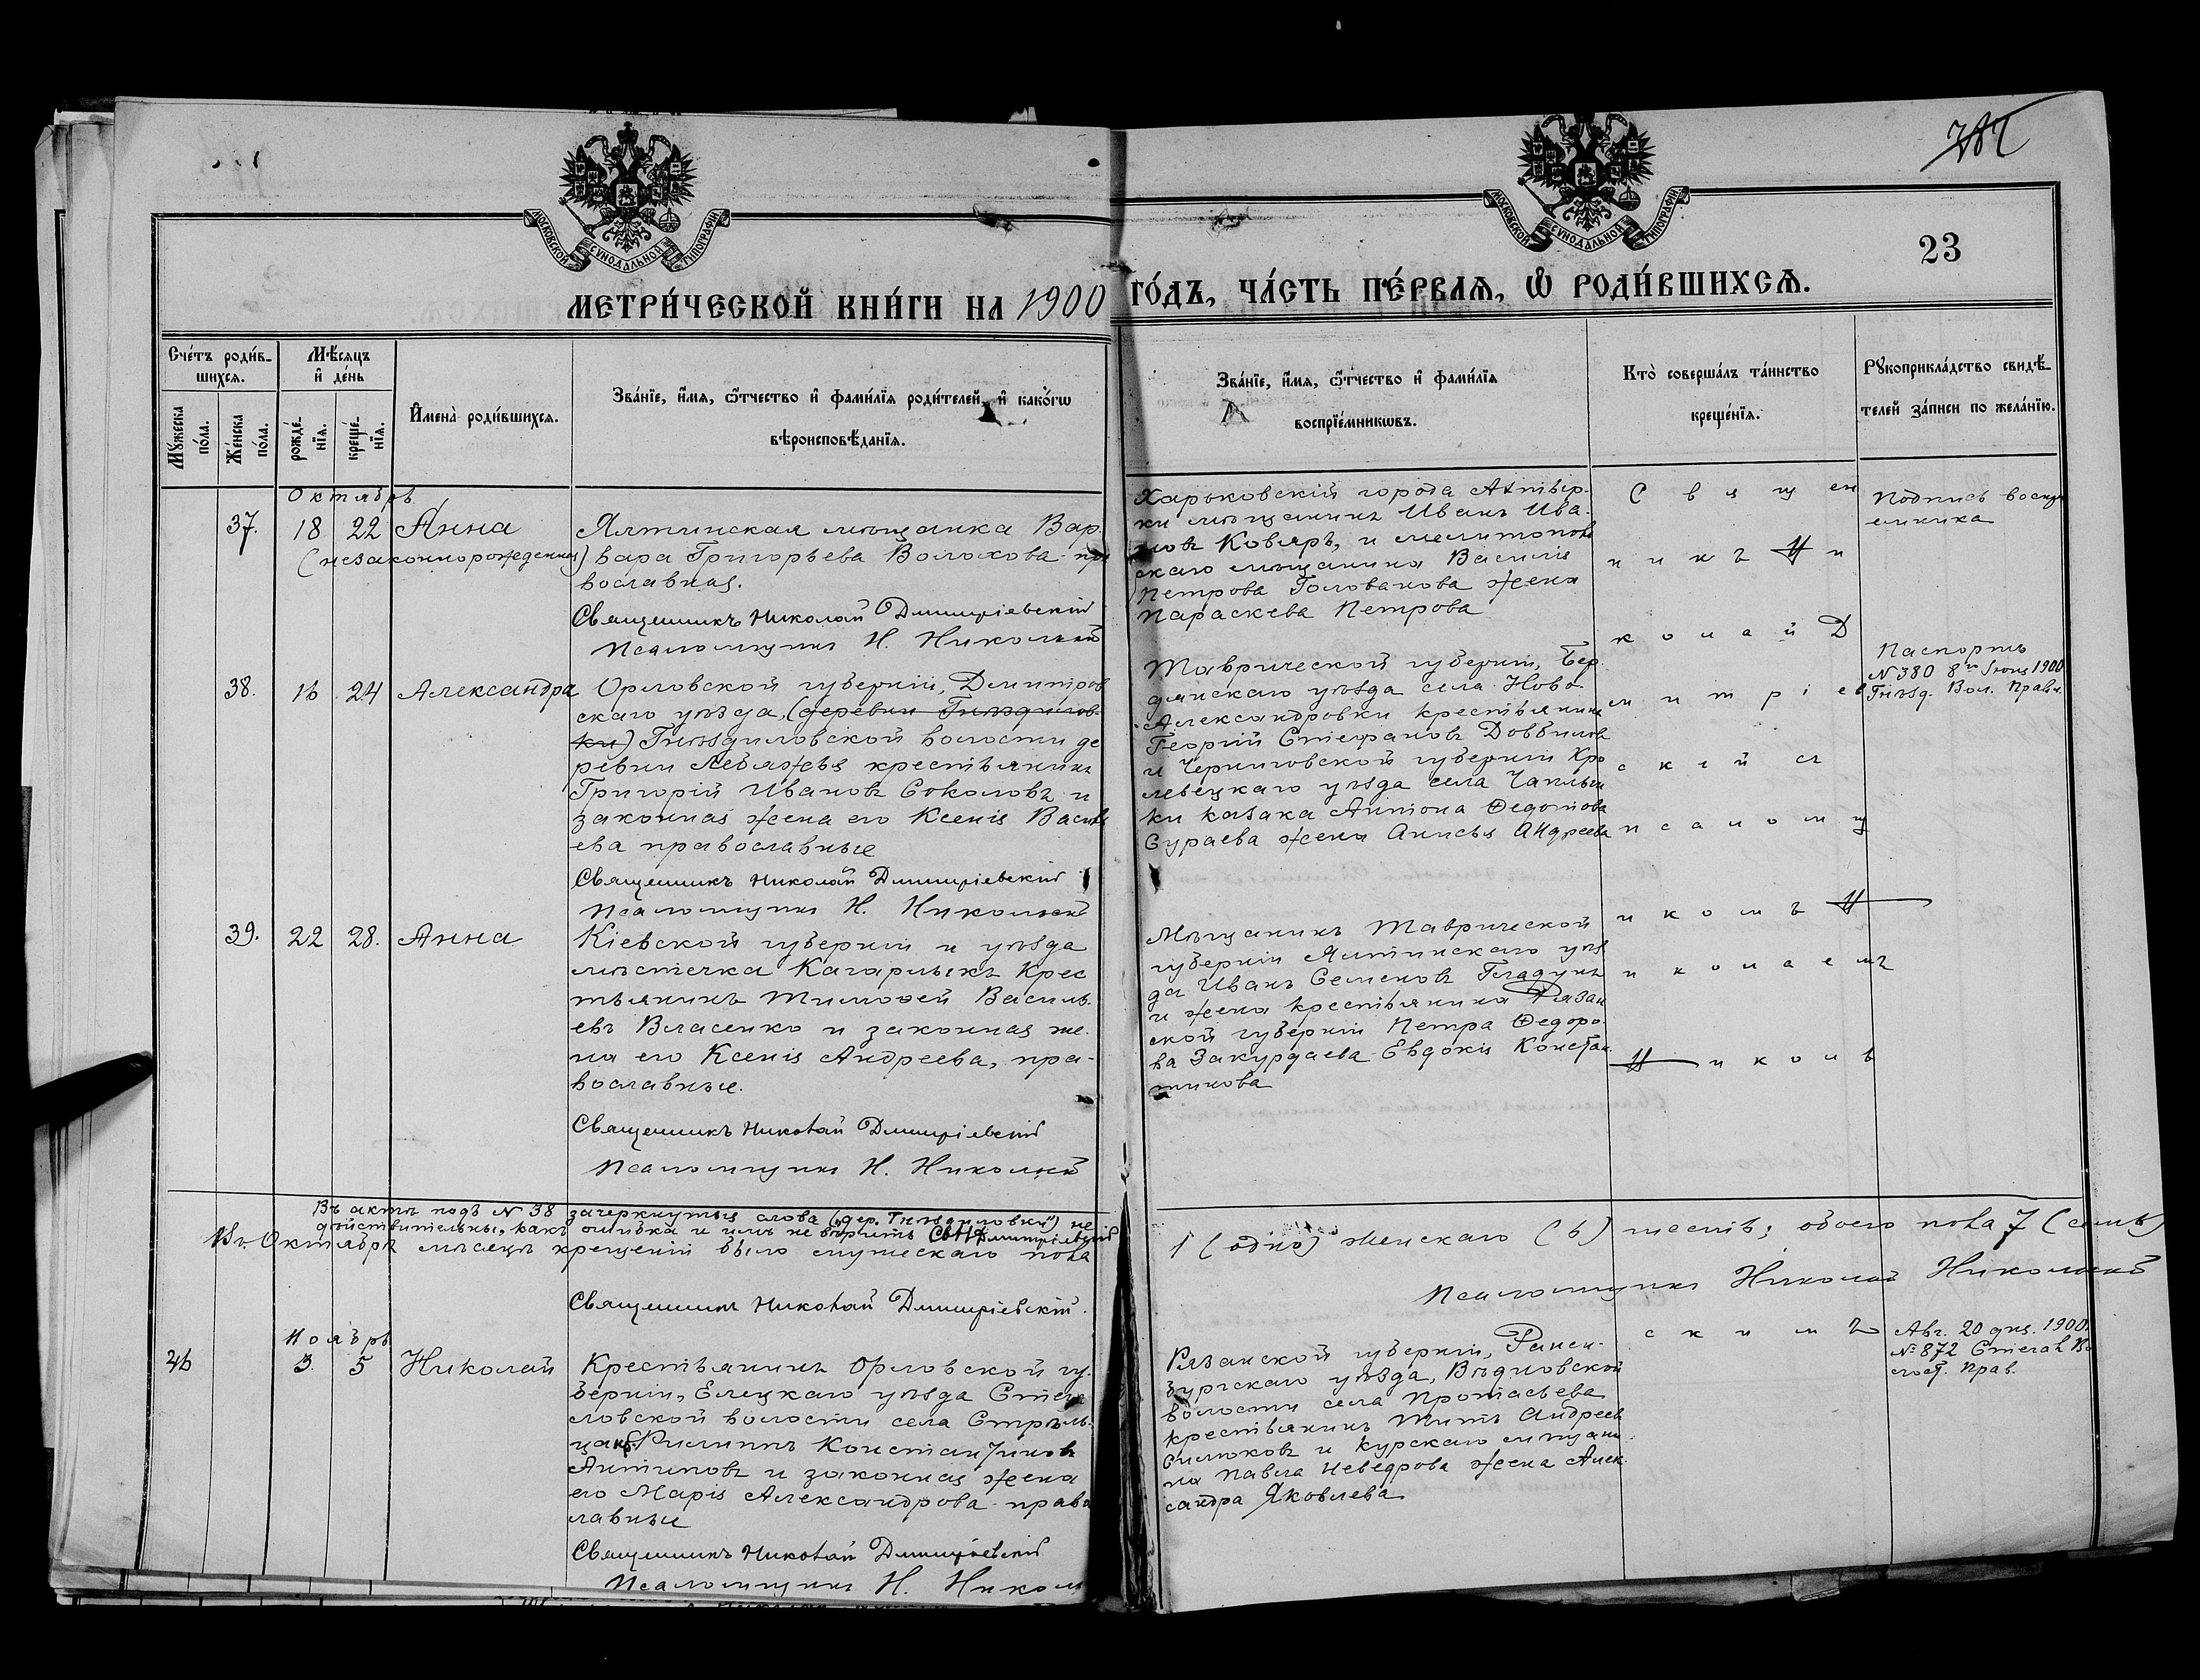 МОСКОВСКОЙ СѴНОДАЛЬНОЙ ТИПОГРАФІИ
МОСКОВСКОЙ СѴНОДАЛЬНОЙ ТИПОГРАФІИ
23
МЕТРИ́ЧЕСКОЙ КНИ́ГИ НА 1900 ГО́ДЪ, ЧА́СТЬ ПЕ́РВАЯ, Ѡ РОДИ́ВШИХСЯ.
Сче́тъ роди́в-
шихся.
Мѣ́сяцъ
и де́нь
Мꙋ́жеска
по́ла.
Же́нска
по́ла.
рожде́-
нїя.
креще́-
нїя.
И҆мена̀ роди́вшихся.
Зва́нїе, и҆́мя, ѻ҆́тчество и҆ фами́лїя роди́телей, и҆ како́гѡ
вѣроисповѣ́данїя.
Зва́нїе, и҆́мя, ѻ҆́тчество и҆ фами́лїя
воспрїе́мникѡвъ.
Кто̀ соверша́лъ та́инство
креще́нїя.
Рꙋкоприкла́дство свидѣ́-
телей за́писи по жела́нїю.
Октябрь
37. 18 22 Анна
(незаконнорожденная)
Ялтинская мѣщанка Вар-
вара Григорьева Волохова пра
вославная.
Священникъ Николай Дмитріевскій
Псаломщикъ Н. Никольскій
Харьковскій города Ахтыр-
ки мѣщанинъ Иванъ Ива-
новъ Коваръ, и мелитополь
скаго мѣщанина Василія
Петрова Голованова жена
Параскева Петрова
Подпись воспрі
емника
38. 16 24 Александра
Орловской губерніи, Дмитров
скаго уѣзда, (деревни Гнѣздилов-
ки) Гнѣздиловской волости де
ревни Лебяжья крестьянинъ
Григорій Ивановъ Соколовъ и
законная жена его Ксенія Василь
ева православные
Священникъ Николай Дмитріевскій
Псаломщикъ Н. Никольскій
Таврической губерніи, Бер-
дянскаго уѣзда села Ново-
Александровки крестьянинъ
Георгій Стефановъ Довбиловъ
и Черниговской губерніи Кро
левецкаго уѣзда села Чаплын
ки казака Антона Ѳедотова
Сураева жена Анисья Андреева
Паспортъ
№ 380 8го Іюня 1900
Гнѣзд. Вол. Правл.
39. 22 28. Анна
Кіевской губерніи и уѣзда
мѣстечка Кагарлыкъ Крес
тьянинъ Тимоѳей Василь-
евъ Власенко и законная же-
на его Ксенія Андреева, пра-
вославные.
Священникъ Николай Дмитріевскій
Псаломщикъ Н. Никольскій
Мѣщанинъ Таврической
губерніи Ялтинскаго уѣз
да Иванъ Семеновъ Гладунъ
и жена крестьянина Рязан
ской губерніи Петра Ѳедоро-
ва Закурдаева Евдокія Констан
тинова
С в я щ ен
н и к ъ Н и
к о л а й Д
м и т р і ев
с к і й съ
п с а л о м щ
и к о м ъ Н
и к о л а е мъ
Н и к о л ь
с к и м ъ
Въ актѣ подъ № 38 зачеркнутыя слова („дер. Гнѣздиловки") не
дѣйствительны, какъ ошибка и имъ не вѣрить Св. Н. Дмитріевскій
Въ Октябрѣ мѣсяцѣ крещеній было мужескаго пола
1 (одно) женскаго (6) шесть; обоего пола 7 (семь)
Священникъ Николай Дмитріевскій.
Псаломщикъ Николай Никольскій
Ноябрь
26 3. 5 Николай
Крестьянинъ Орловской гу-
берніи, Елецкаго уѣзда Стега
ловской волости села Стрѣль-
ца Филиппъ Константиновъ
Антиповъ и законная жена
его Марія Александрова право
лавные
Священникъ Николай Дмитріевскій
Псаломщикъ Н. Николь
Рязанской губерніи, Ранен-
бургскаго уѣзда, Вѣдновской
волости села Протасьева
крестьянинъ Титъ Андреевъ
Силюковъ и курскаго мѣщани-
на Павла Неведрова жена Алек-
сандра Яковлева
Авг. 20 дня. 1900.
№ 872 Стегал. Во
лост. Прав.